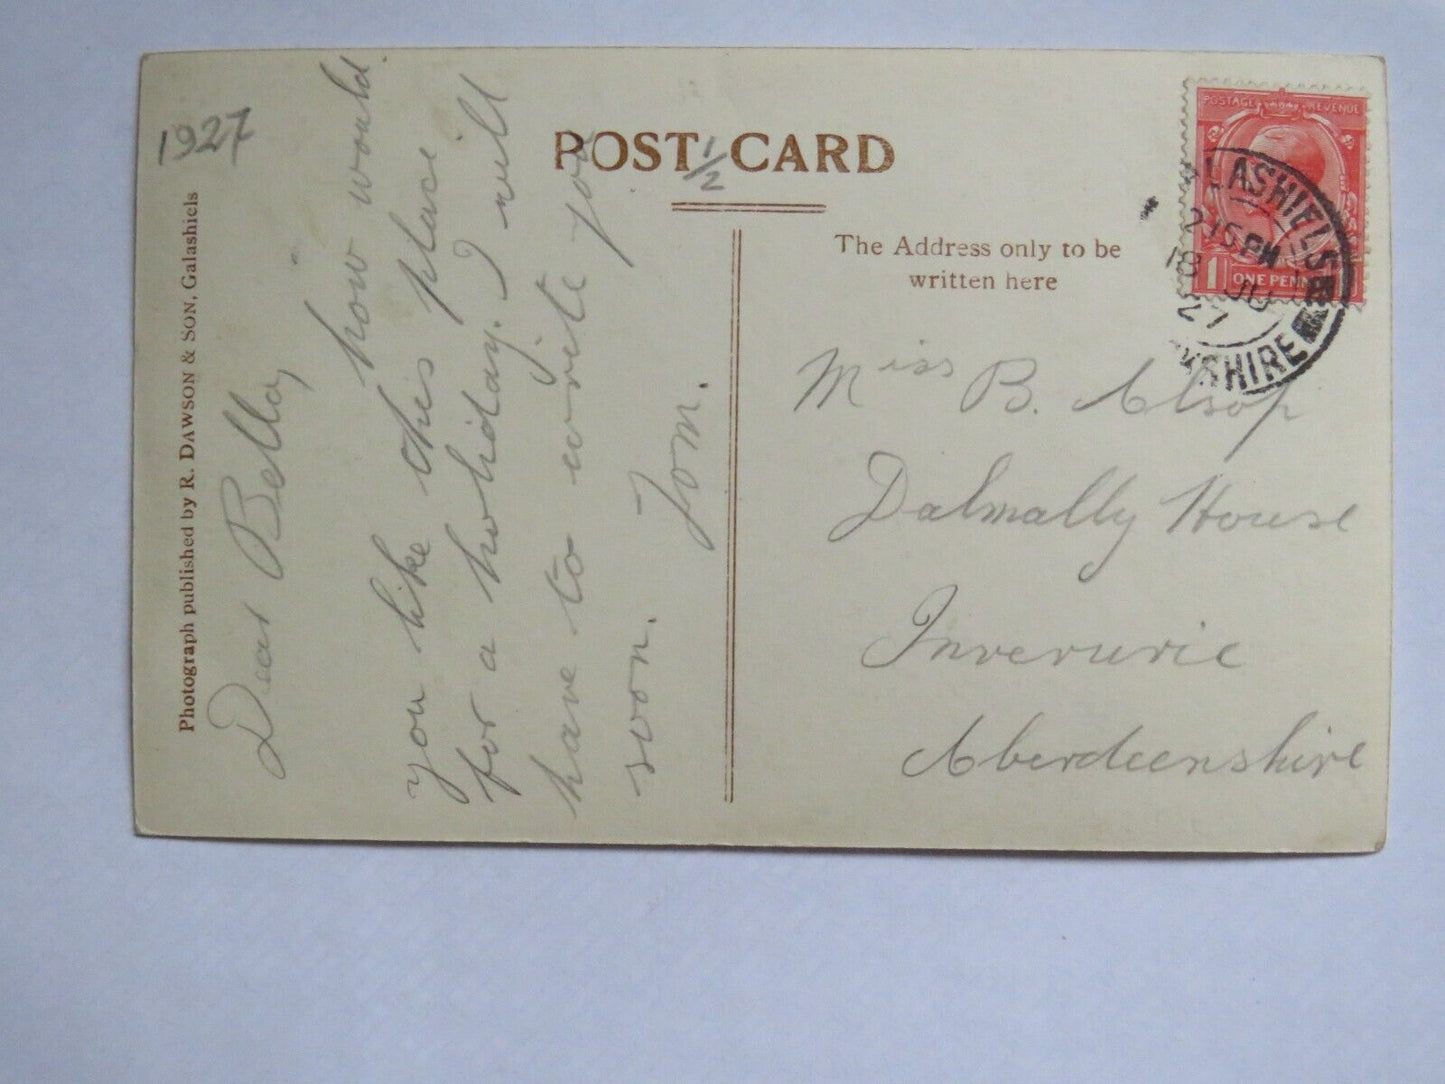 1927
Photograph published by R. DAWSON & SON, Galashiels
Dear Bella,
how would
you like this place
for a holiday. I will
have to write you
soon. Tom.
POST CARD
1/2
The Address only to be
written here
POSTAGE REVENUE
1 ONE PENNY
LASHIELS
2 15 PM
18 JU
27
KSHIRE
Miss B. Alsop
Dalmally House
Inverurie
Aberdeenshire